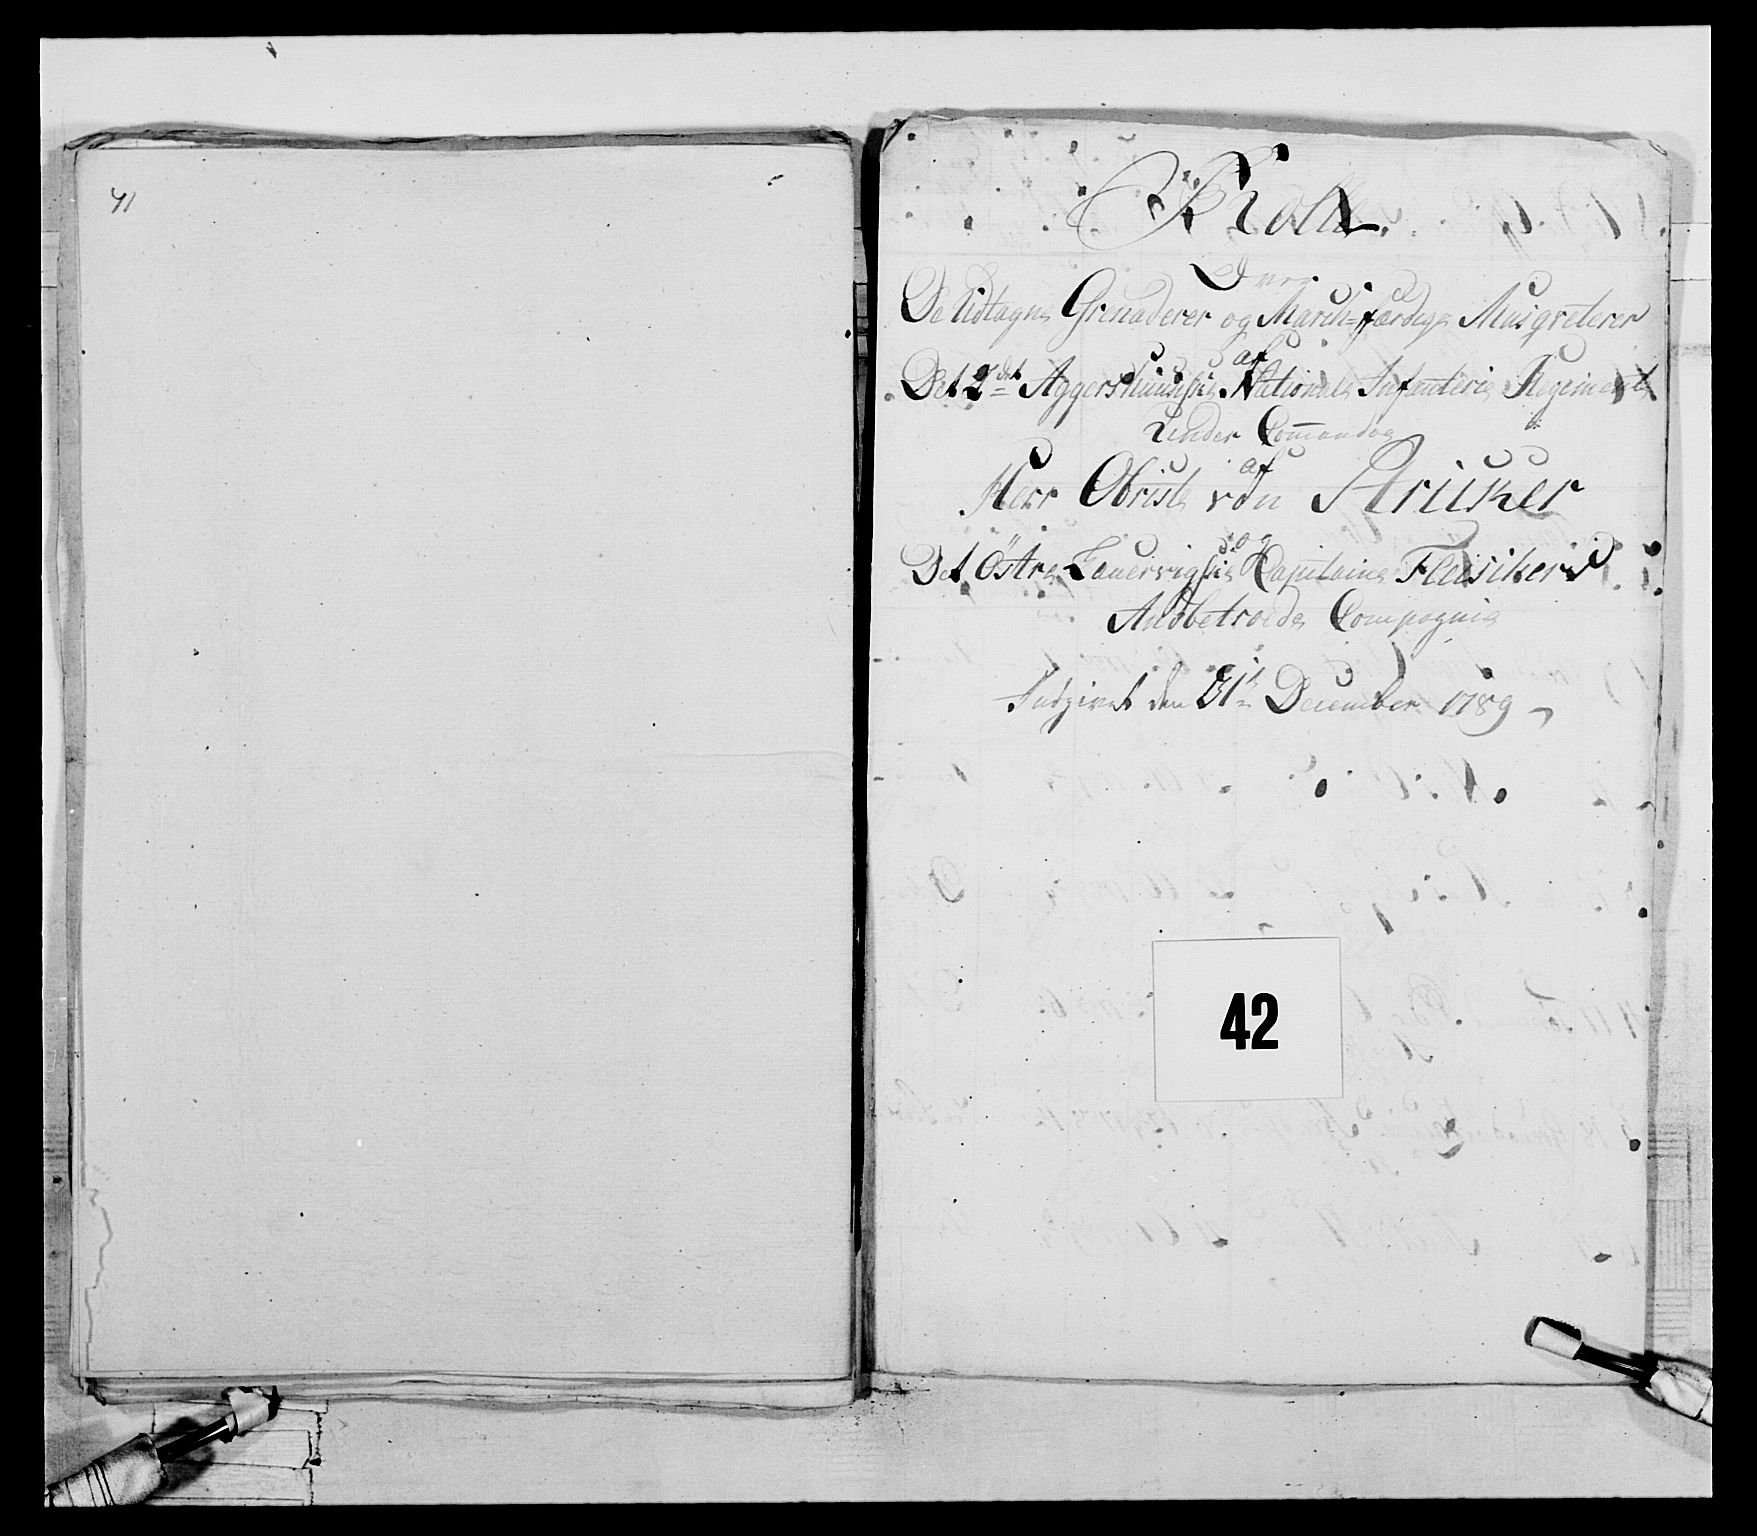 41
Rolle
Over
De Udtagne Grenaderer og March-færdige Musqveterer
af
Det 2det Aggershuusiske Nationale Infanterie Regiment
Under Commando
af
Herr Obriste von Stricker
og
Det Östre Laurvigske Capitaine Fleischers
Anbetroede Compagnie
Indgivet den 31te December 1789
42